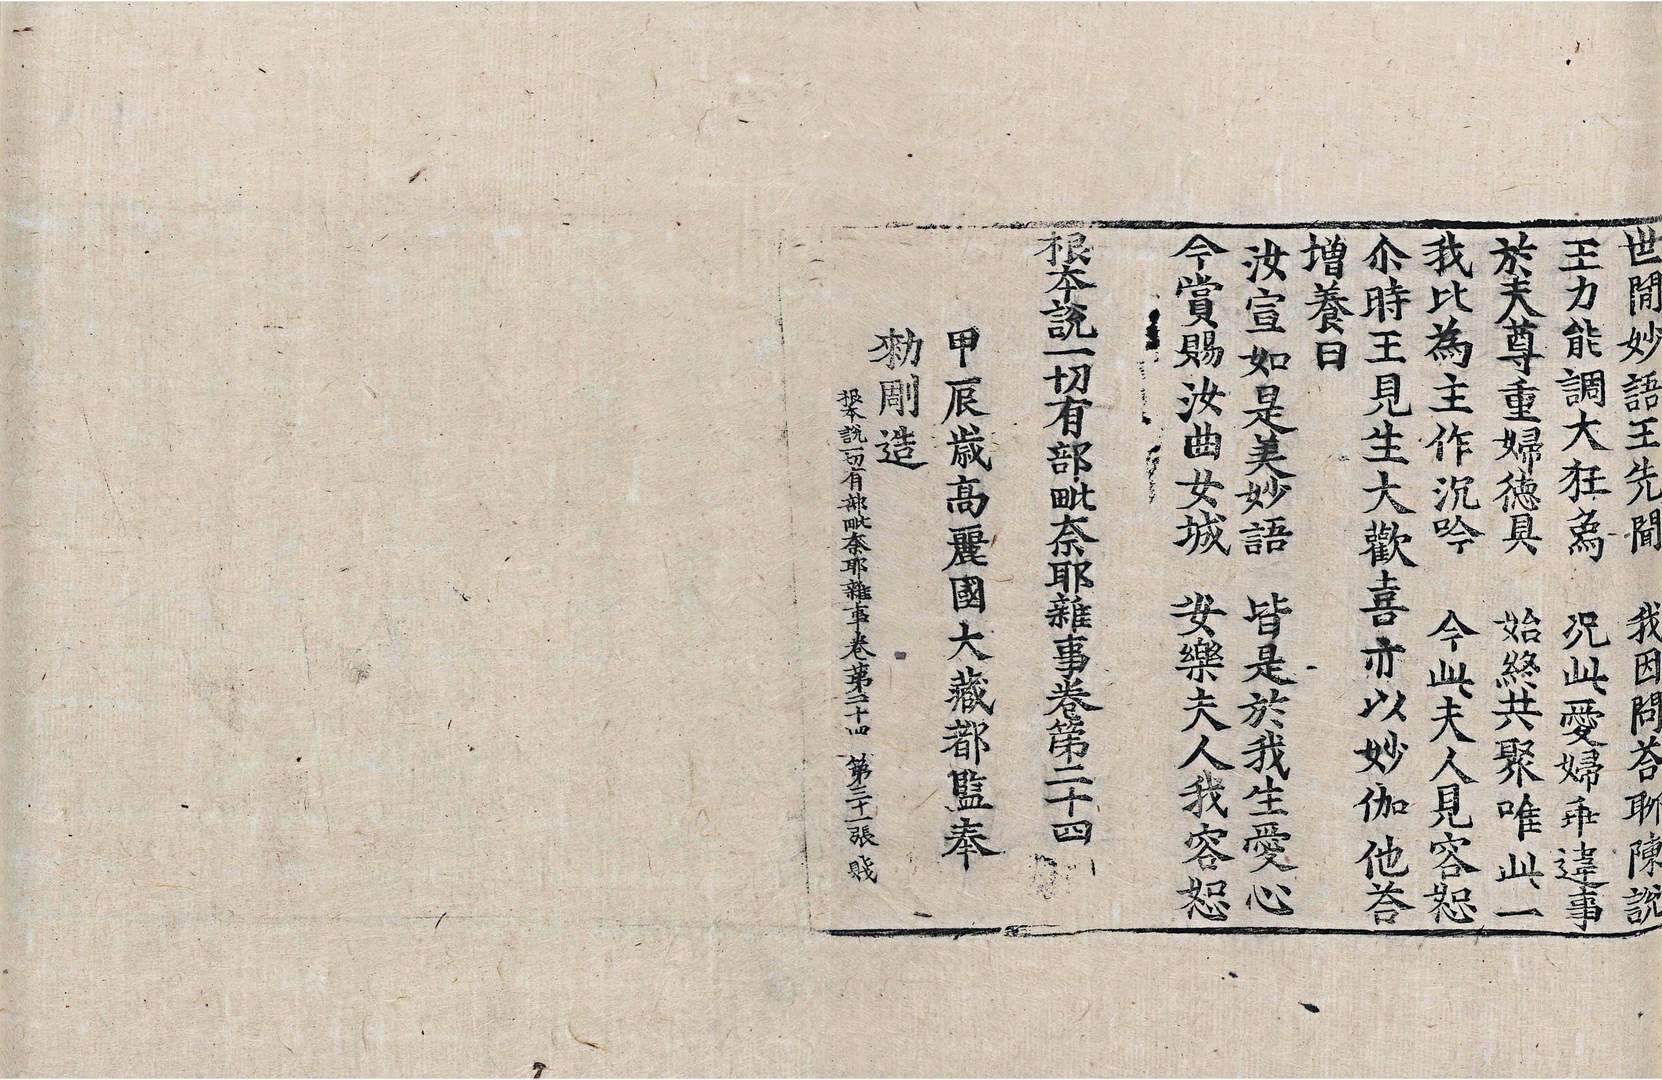 世間妙語王先聞　我因問荅聊陳說
王力能調大狂象　況此愛婦乖違事
於夫尊重婦德具　始終共聚唯此一
我比為主作沉吟　今此夫人見容恕
尒時王見生大歡喜亦以妙伽他荅
增養曰
汝宣如是美妙語　皆是於我生愛心
今賞賜汝曲女城　安樂夫人我容恕
根本說一切有部毗奈耶雜事卷第二十四
甲辰歲高麗國大藏都監奉
勑彫造
根本說一切有部毗奈耶雜事卷第二十四　第二十一張　賤